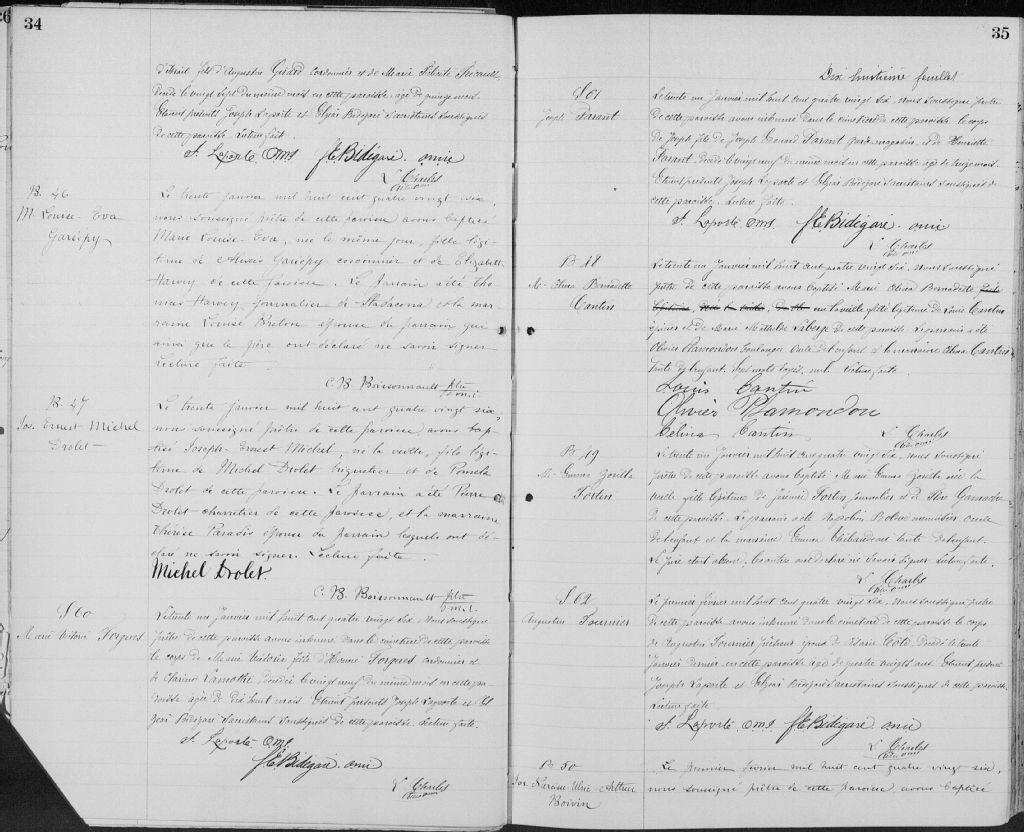 34
d'Abrail fils d'Augustin Girard cordonnier et de Marie Félicité
décédé le vingt sept du même mois en cette paroisse, âgé de quinze mois.
Etaient présents Joseph Laporte et Elzéar Bédégaré Sacristains soussignés
de cette paroisse. Lecture faite.
J. Laporte O.M.I. f. E. Bédigaré. omie
L. Charles
Ptre omi
B. 46
M. Louise-Eva
Gariépy
Le trente janvier mil huit cent quatre vingt six,
nous soussigné prêtre de cette paroisse avons baptisé
Marie Louise-Eva, née le même jour, fille légi-
time de Alexis Gariépy cordonnier et de Elizabeth
Harvey de cette paroisse. Le parrain a été Tho
mas Harvey, journalier de Stadacona et la mar
raine Louise Breton épouse du parrain qui
ainsi que le père ont déclaré ne savoir signer
Lecture faite.
C. B. Boissonnault ptre
o.m.i.
B. 47
Jos. Ernest Michel
Drolet
Le trente janvier mil huit cent quatre vingt six,
nous soussigné prêtre de cette paroisse avons bap
tisé Joseph-Ernest Michel, né la veille, fils légi-
time de Michel Drolet briquetier et de Pamela
Drolet de cette paroisse. Le parrain a été Pierre
Drolet charretier de cette paroisse, et la marraine
Thérèse Paradis épouse du parrain lesquels ont dé-
claré ne savoir signer. Lecture faite.
Michel Drolet.
C. B. Boissonnault ptre
o.m.i.
S 60
Marie Victoria Forgues
Le trente un janvier mil huit cent quatre vingt six, nous soussigné
prêtre de cette paroisse avons inhumé dans le cimetière de cette paroisse
le corps de Marie Victoria fille d'Honoré Forgues cordonnier et
de Clarina Lamothe, décédée le vingt neuf du même mois en cette pa
roisse âgée de dix huit mois. Etaient présents Joseph Laporte et El
zéar Bédégaré Sacristains soussignés de cette paroisse. Lecture faite.
J. Laporte O.M.I.
f. E. Bédigaré. omie
L. Charles
Ptre omi
35
Dix huitième feuillet
S 61
Joseph Parant
Le trente un Janvier mil huit cent quatre vingt six, nous soussigné prêtre
de cette paroisse avons inhumé dans le cimetière de cette paroisse le corps
de Joseph fils de Joseph Edouard Parant garde-magasin, et de Henriette
Parant, décédé le vingt neuf du même mois en cette paroisse âgé de treize mois.
Etaient présents Joseph Laporte et Elzéar Bédégaré Sacristains soussignés de
cette paroisse. Lecture faite.
J. Laporte. O.M.I. f. E. Bidégaré. omie
L. Charles
Ptre omi
B 48
M- Elina Bernadette
Cantin
Le trente un Janvier mil huit cent quatre vingt six, nous soussigné
prêtre de cette paroisse avons baptisé Marie Elina Bernadette
née la veille, fille légitime de Louis Cantin
épicier et de Marie Mathilde Laberge de cette paroisse. Le parrain a été
Olivier Plamondon boulanger oncle de l'enfant et la marraine Elina Cantin
tante de l'enfant. Lecture faite.
Louis Cantin
Olivier Plamondon
Celina Cantin
L. Charles
Ptre omi
B 49
M- Emma Zoïlla
Fortin
Le trente un Janvier mil huit cent quatre vingt six, nous soussigné
prêtre de cette paroisse avons baptisé Marie Emma Zoïlla née la
veille fille légitime de Jérémie Fortin journalier et de Elise Gamache
de cette paroisse. Le parrain a été Napoléon Bolduc menuisier oncle
de l'enfant et la marraine Emma Thibaudeau tante de l'enfant.
Le père étant absent, les autres ont déclaré ne savoir signer. Lecture faite.
L. Charles
Ptre omi
S 62
Augustin Fournier
Le premier février mil huit cent quatre vingt six, nous soussigné prêtre
de cette paroisse avons inhumé dans le cimetière de cette paroisse le corps
de Augustin Fournier pêcheur époux de Marie Côté, décédé le trente
Janvier dernier en cette paroisse âgé de quatre vingts ans. Etaient présents
Joseph Laporte et Elzéar Bédégaré Sacristains soussignés de cette paroisse.
Lecture faite.
J. Laporte. O.M.I. f. E. Bédigaré. omie
L. Charles
Ptre omi
B 50
Jos. Narcisse Ulric Arthur
Boivin
Le premier février mil huit cent quatre vingt six,
nous soussigné prêtre de cette paroisse avons baptisé